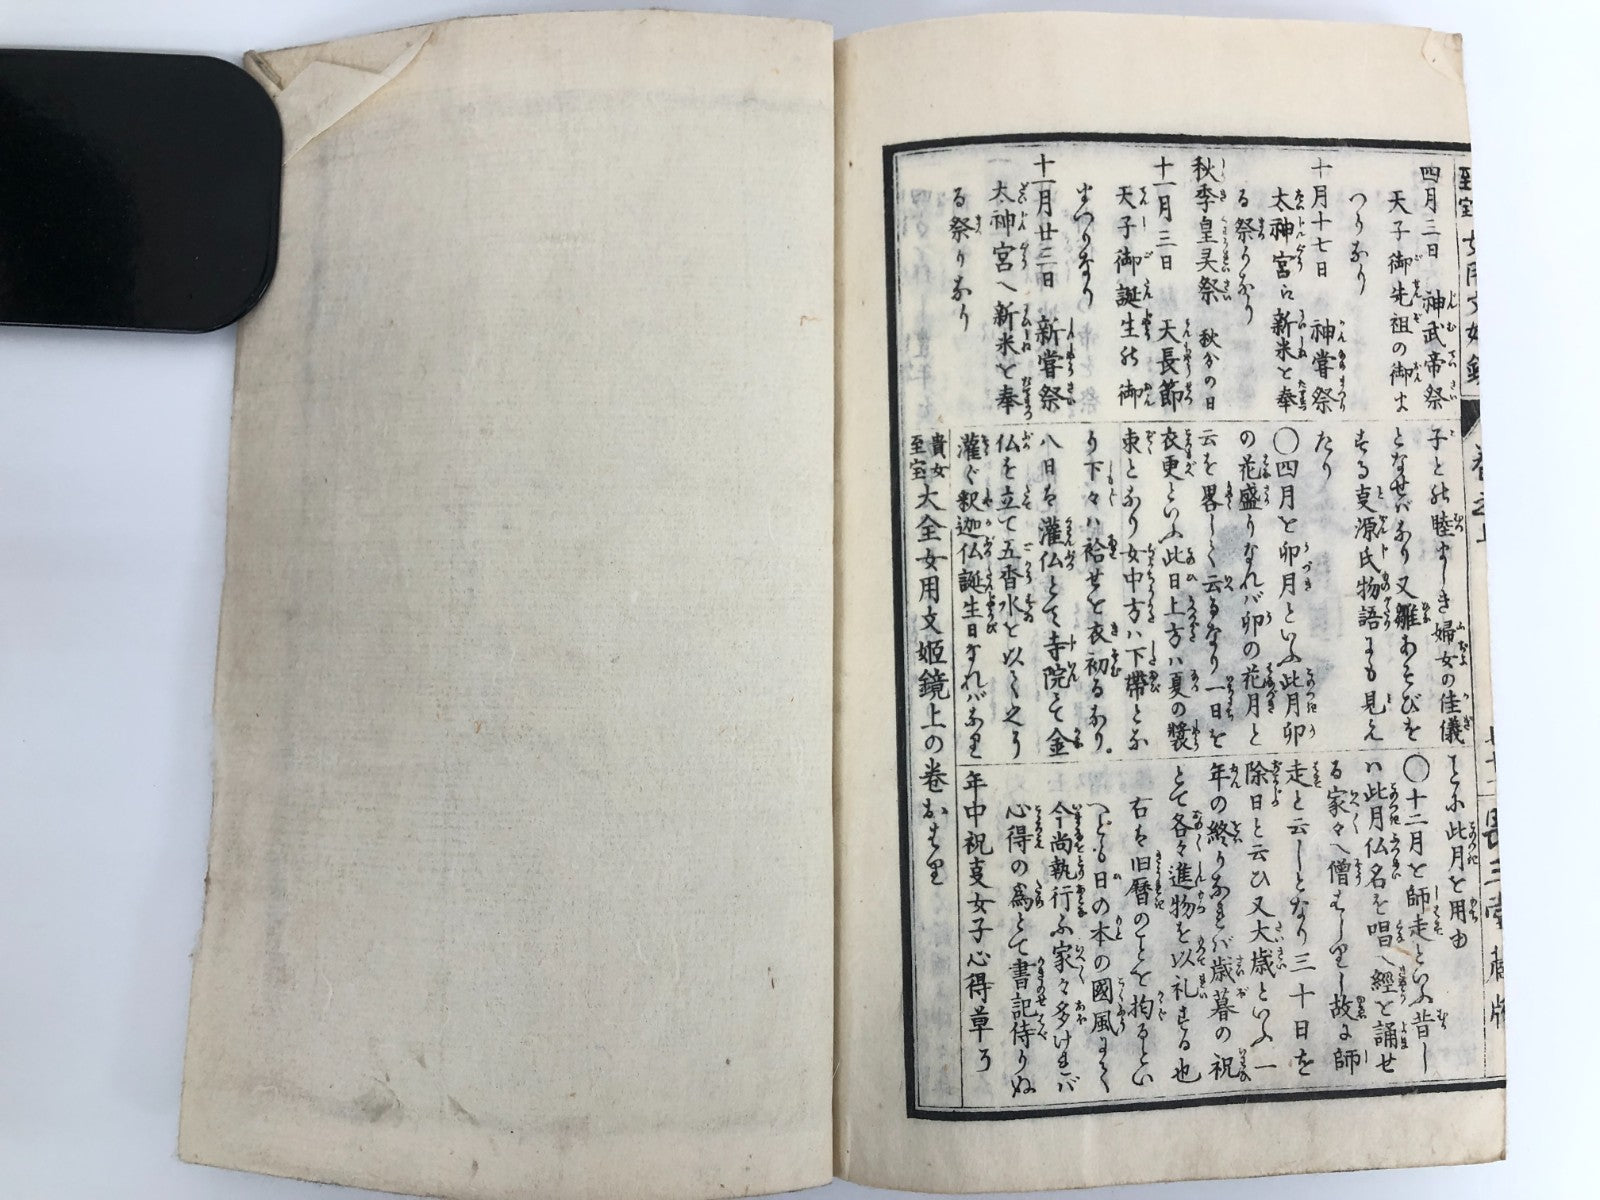 四月三日　神武帝祭
天子御先祖の御ま
つりなり
十月十七日　神嘗祭
太神宮に新米を奉
る祭りなり
秋季皇灵祭　秋分の日
十一月三日　天長節
天子御誕生の御
まつりなり
十一月廿三日　新嘗祭
太神宮へ新米を奉
る祭りなり
子との睦ましき婦女の佳儀
となせバなり又雛あそびを
する叓源氏物語にも見え
たり
〇四月を卯月といふ此月卯
の花盛りなれバ卯の花月と
云を畧しく云るなり一日を
衣更といふ此日上方ハ夏の裝
束となり女中方ハ下帶とな
り下々ハ袷せを衣初るなり。
八日は灌仏とて寺院にて金
仏を立て五香水を以て之を
灌ぐ釈迦仏誕生日なれバなり
貴女至宝大全女用文姫鏡上の卷おはり
此月を用由
〇十二月を師走といふ昔し
ハ此月仏名を唱へ經を誦せ
る家々へ僧はしりし故に師
走と云しとなり三十日を
除日と云ひ又大歳といふ一
年の終りなれバ歳暮の祝
とて各々進物を以礼する也
右は旧暦のことを拘るとい
へども日の本の國風にて
今尚執行ふ家々多けれバ
心得の為とて書記侍りぬ
年中祝叓女子心得草